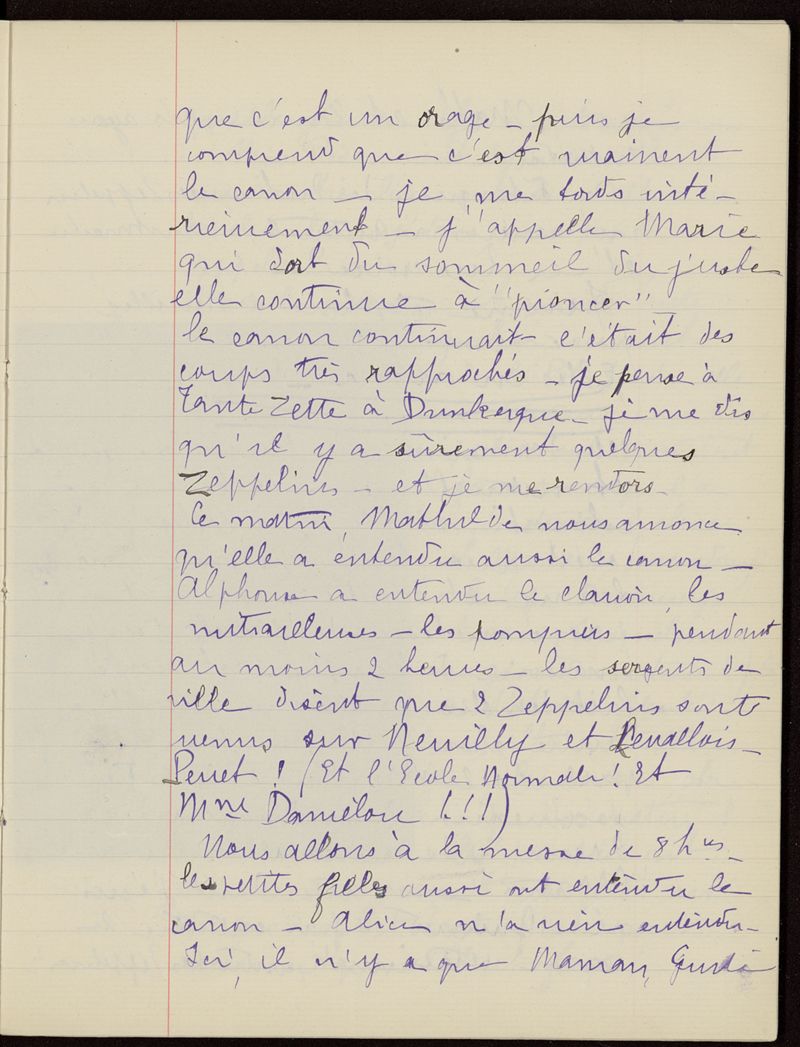 que c'est un orage - puis je
comprend que c'est vraiment
le canon - je me tords inté-
rieurement - j'appelle Marie
qui dort du sommeil du juste
elle continue à "pioncer" -
le canon continuait - c'était des
coups très rapprochés - je pense à
Tante Zette à Dunkerque - je me dis
qu'il y a sûrement quelques
Zeppelins - et je me rendors -
Ce matin, Mathilde nous annonce
qu'elle a entendu aussi le canon -
Alphonse a entendu le clairon, les
mitrailleuses - les pompiers - pendant
au moins 2 heures - les sergents de
ville disent que 2 Zeppelins sont
venus sur Neuilly et Levallois-
Perret ! (Et l'Ecole Normale ! Et
Mme Daniélou !!!)
Nous allons à la messe de 8 hres -
les petites filles aussi ont entendu le
canon - Alice n'a rien entendu -
Ici, il n'y a que Maman,